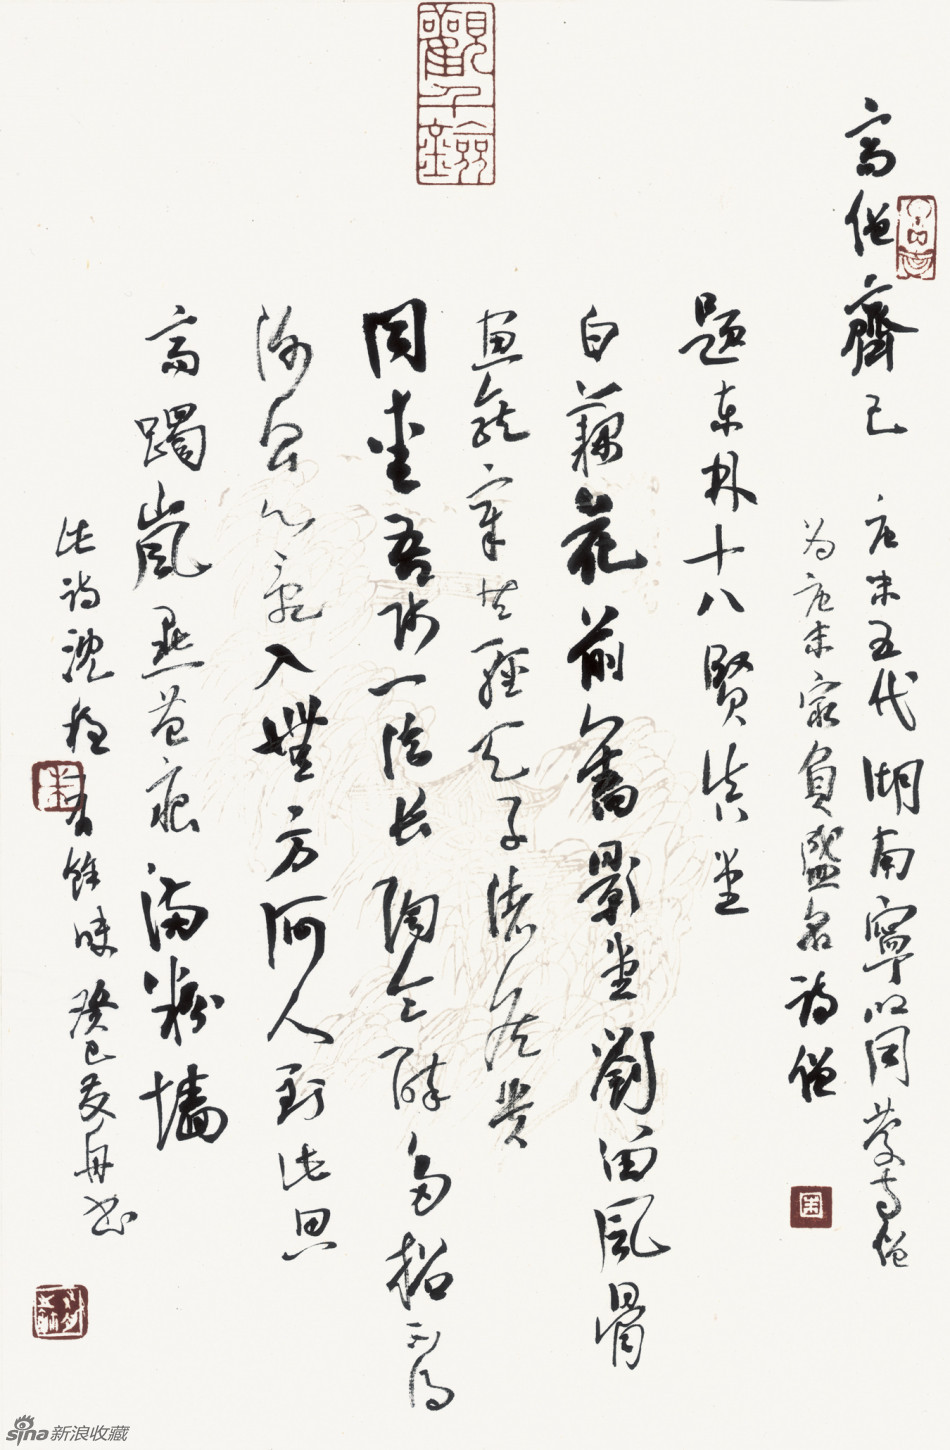 觀千劍
高僧齊己 唐末五代湖南寧鄉同慶寺僧
為唐末最負盛名詩僧
題東林十八賢真堂
白藕花前舊影堂劉雷風骨
畫龍章共輕天子諸侯貴
同愛吾師一法長陶令醉多招不得
謝公心亂入無方何人到此思
高躅嵐點苔痕滿粉墻
此詩沈穩有餘味 癸巳舟書
sina新浪收藏